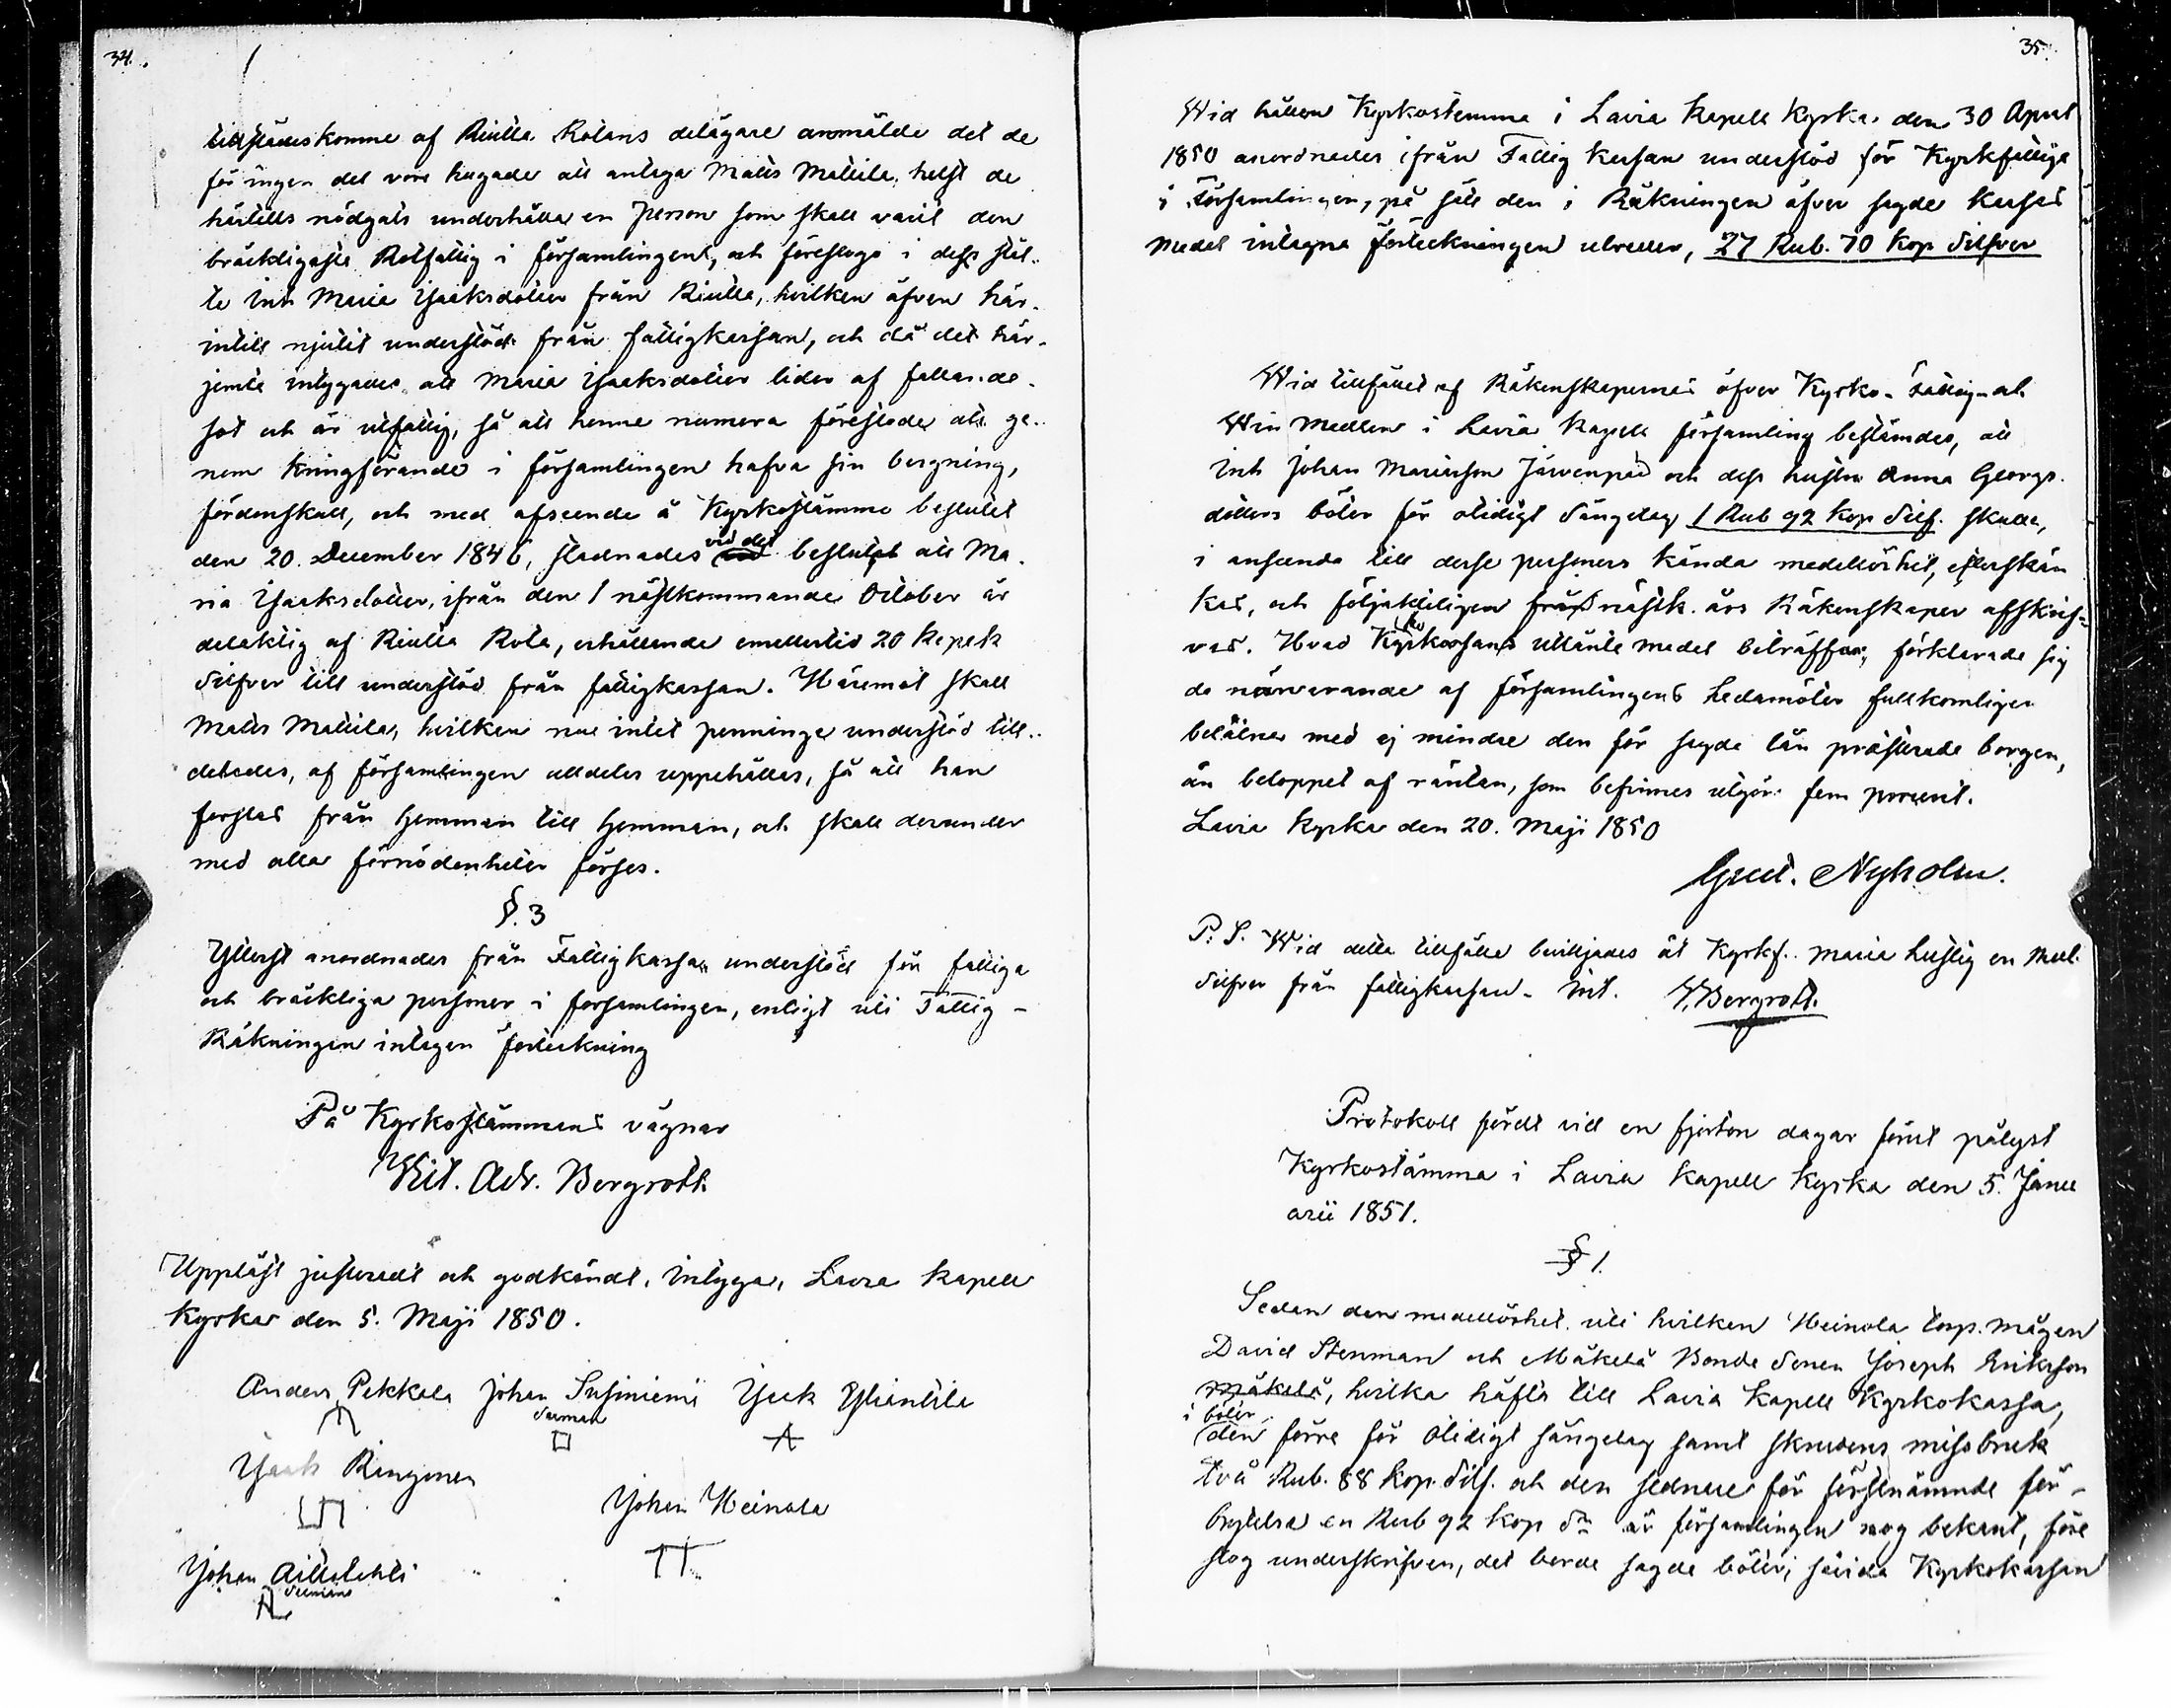 34.
tillstädeskomne af Riulla Rotans delägare anmälde det de
för ingen del vore hugade att antaga Matts Mattila, helst de
härtills nödgats underhålla en person som skall varit den
bräckligaste Rotfattig i församlingen, och föreslogo i dess stäl-
le Inh Maria Isaksdotter från Riulla, hvilken äfven här-
intill njutit understöd från fattigkassan, och då det här-
jemte intygades att Maria Isaksdotter lider af fallande-
sot och är utfattig, så att henne numera förestode att ge-
nom kringförande i församlingen hafva sin bergning,
fördenskull, och med afseende å Kyrkostämmo beslutet
den 20. December 1846, stadnades vid det beslutet att Ma-
ria Isaksdotter, ifrån den 1 nästkommande October är
delaktig af Riulla Rota, erhållande emellertid 20 kopek
Silfver till understöd från fattigkassan. Häremot skall
Matts Mattila, hvilken nu intet penninge understöd till-
delades, af församlingen alldeles uppehållas, så att han
forslas från Hemman till Hemman, och skall derunder
med alla förnödenheter förses.
§. 3
Ytterst anordnades från Fattigkassan understöd för fattiga
och bräckliga personer i församlingen, enligt uti Fattig-
Räkningen intagen förteckning
På Kyrkostämmans vägnar
Wilh. Adr. Bergroth.
Uppläst justeradt och godkändt, intyga, Lavia Kapell
Kyrka den 5. Maji 1850.
Anders Pekkala Johan Susiniemi Isak Yliantila
Isak Ringinen
Johan Heinola
Johan Aittolahti
35.
Wid hållen Kyrkostemma i Lavia Kapell Kyrka den 30 April
1850 anordnades ifrån Fattig Kassan understöd för Kyrkfattige
i Församlingen, på sätt den i Räkningen öfver sagde Kassas
medel intagna förteckningen utvisar, 27 Rub. 70 Kop Silfver
Wid tillfället af Räkenskapernes öfver Kyrko- Fattig- och
Win Medlen i Lavia Kapell församling bestämdes, att
Inh Johan Mariason Järvenpää och dess hustru Anna Georgs-
dotters böter för otidigt Sängelag 1 Rub 92 Kop Silf. skulle,
i anseende till desse personers kända medellöshet, efterskän
kas, och följaktligen från nästk. års Räkenskaper afskrif-
vas. Hvad Kyrkokassans utlånte medel beträffar, förklarade sig
de närvarande af församlingens Ledamöter fullkomligen
belåtna med ej mindre den för sagde lån præsterade borgen,
än beloppet af räntan, som befinnes utgöra fem procent.
Lavia Kyrka den 20. Maji 1850
Gust. Nyholm.
P. S. Wid detta tillfälle beviljades åt Kyrkf. Maria Hustig en Rub.
Silfver från fattigkassan. Int. W. Bergroth.
Protokoll fördt vid en fjorton dagar förut pålyst
Kyrkostämma i Lavia Kapell Kyrka den 5. Janu
arii 1851.
§ 1.
Sedan den medellöshet, uti hvilken Heinola torp. mågen
David Stenman och Mäkelä Bonde Sonen Joseph Eriksson
Mäkelä, hvilka häfta till Lavia Kapell Kyrkokassa,
i böter
den förre för otidigt sängelag samt skrudens missbruk
två Rub. 88 Kop. Silf. och den sednare för förstnämnde för-
brytelse en Rub 92 Kop Sm är församlingen nog bekant, före
slog underskrifven, det borde sagde böter,  Kyrkokassan